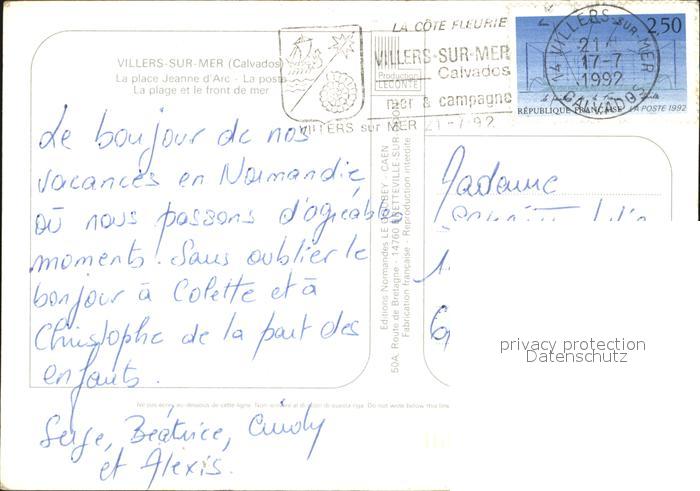 LA CÔTE FLEURIE
VILLERS-SUR-MER
Calvados
mer & campagne
VILLERS sur MER 21-7-92
VILLERS-SUR-MER
21 H
17-7
1992
14 CALVADOS
2,50
RÉPUBLIQUE FRANÇAISE LA POSTE 1992
VILLERS-SUR-MER (Calvados)
La place Jeanne d'Arc - La poste
La plage et le front de mer
Production
LECONTE
Le bonjour de nos
vacances en Normandie
où nous passons d'agréables
moments. Sans oublier le
bonjour à Colette et à
Christophe de la part des
enfants.
Serge, Béatrice, Cindy
et Alexis.
Editions Normandes LE CAEN
50A, Route de Bretagne - 14760 BRETTEVILLE-SUR-ODON
Fabrication française - Reproduction interdite
Madame
Ne pas écrire au-dessous de cette ligne. Non scrivere al di sotto di questa riga. Do not write below this line
privacy protection
Datenschutz